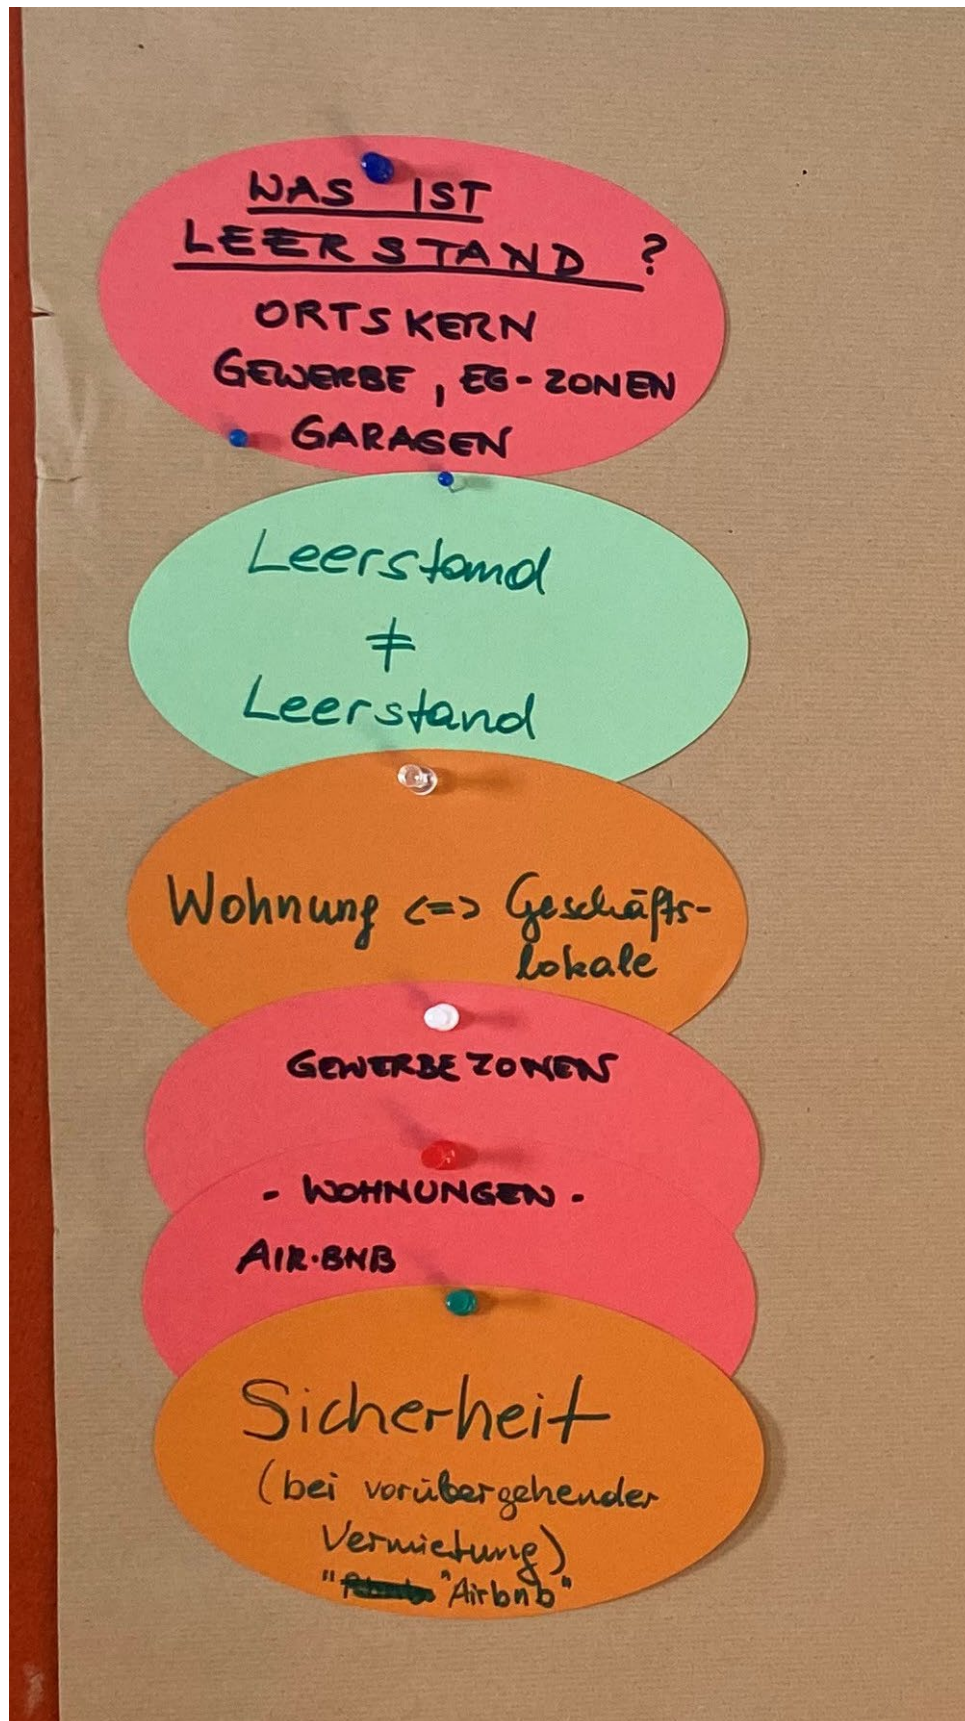 WAS IST
LEERSTAND ?
ORTSKERN
GEWERBE, EG-ZONEN
GARAGEN
Leerstand
≠
Leerstand
Wohnung <=> Geschäfts-
lokale
GEWERBEZONEN
- WOHNUNGEN -
AIR·BNB
Sicherheit
(bei vorübergehender
Vermietung)
" "Airbnb"